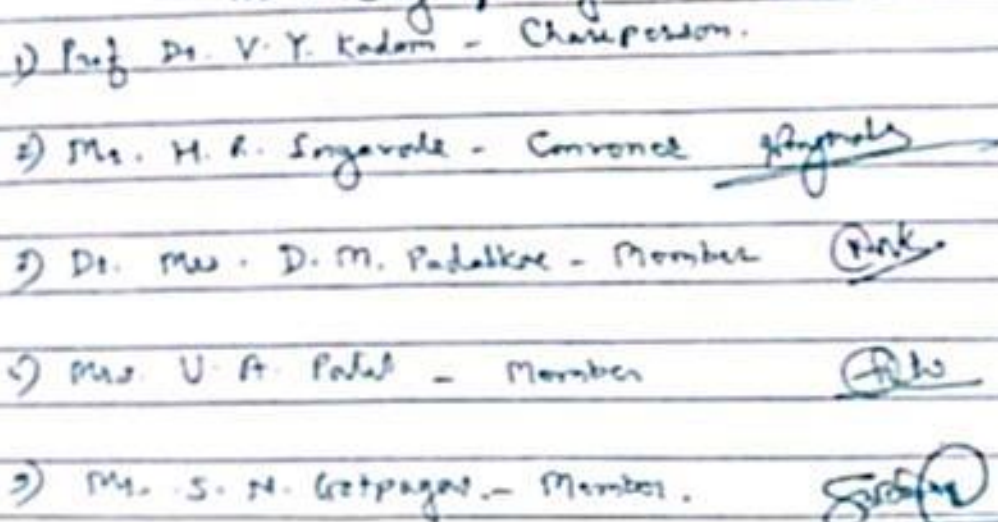 1) Prof Dr. V. Y. Kadam - Chairperson.
2) Mr. H. R. Ingavale - Convener
3) Dr. Mrs. D. M. Padalkar - Member
4) Mrs. U. A. Patil - Member
5) Mr. S. N. - Member.